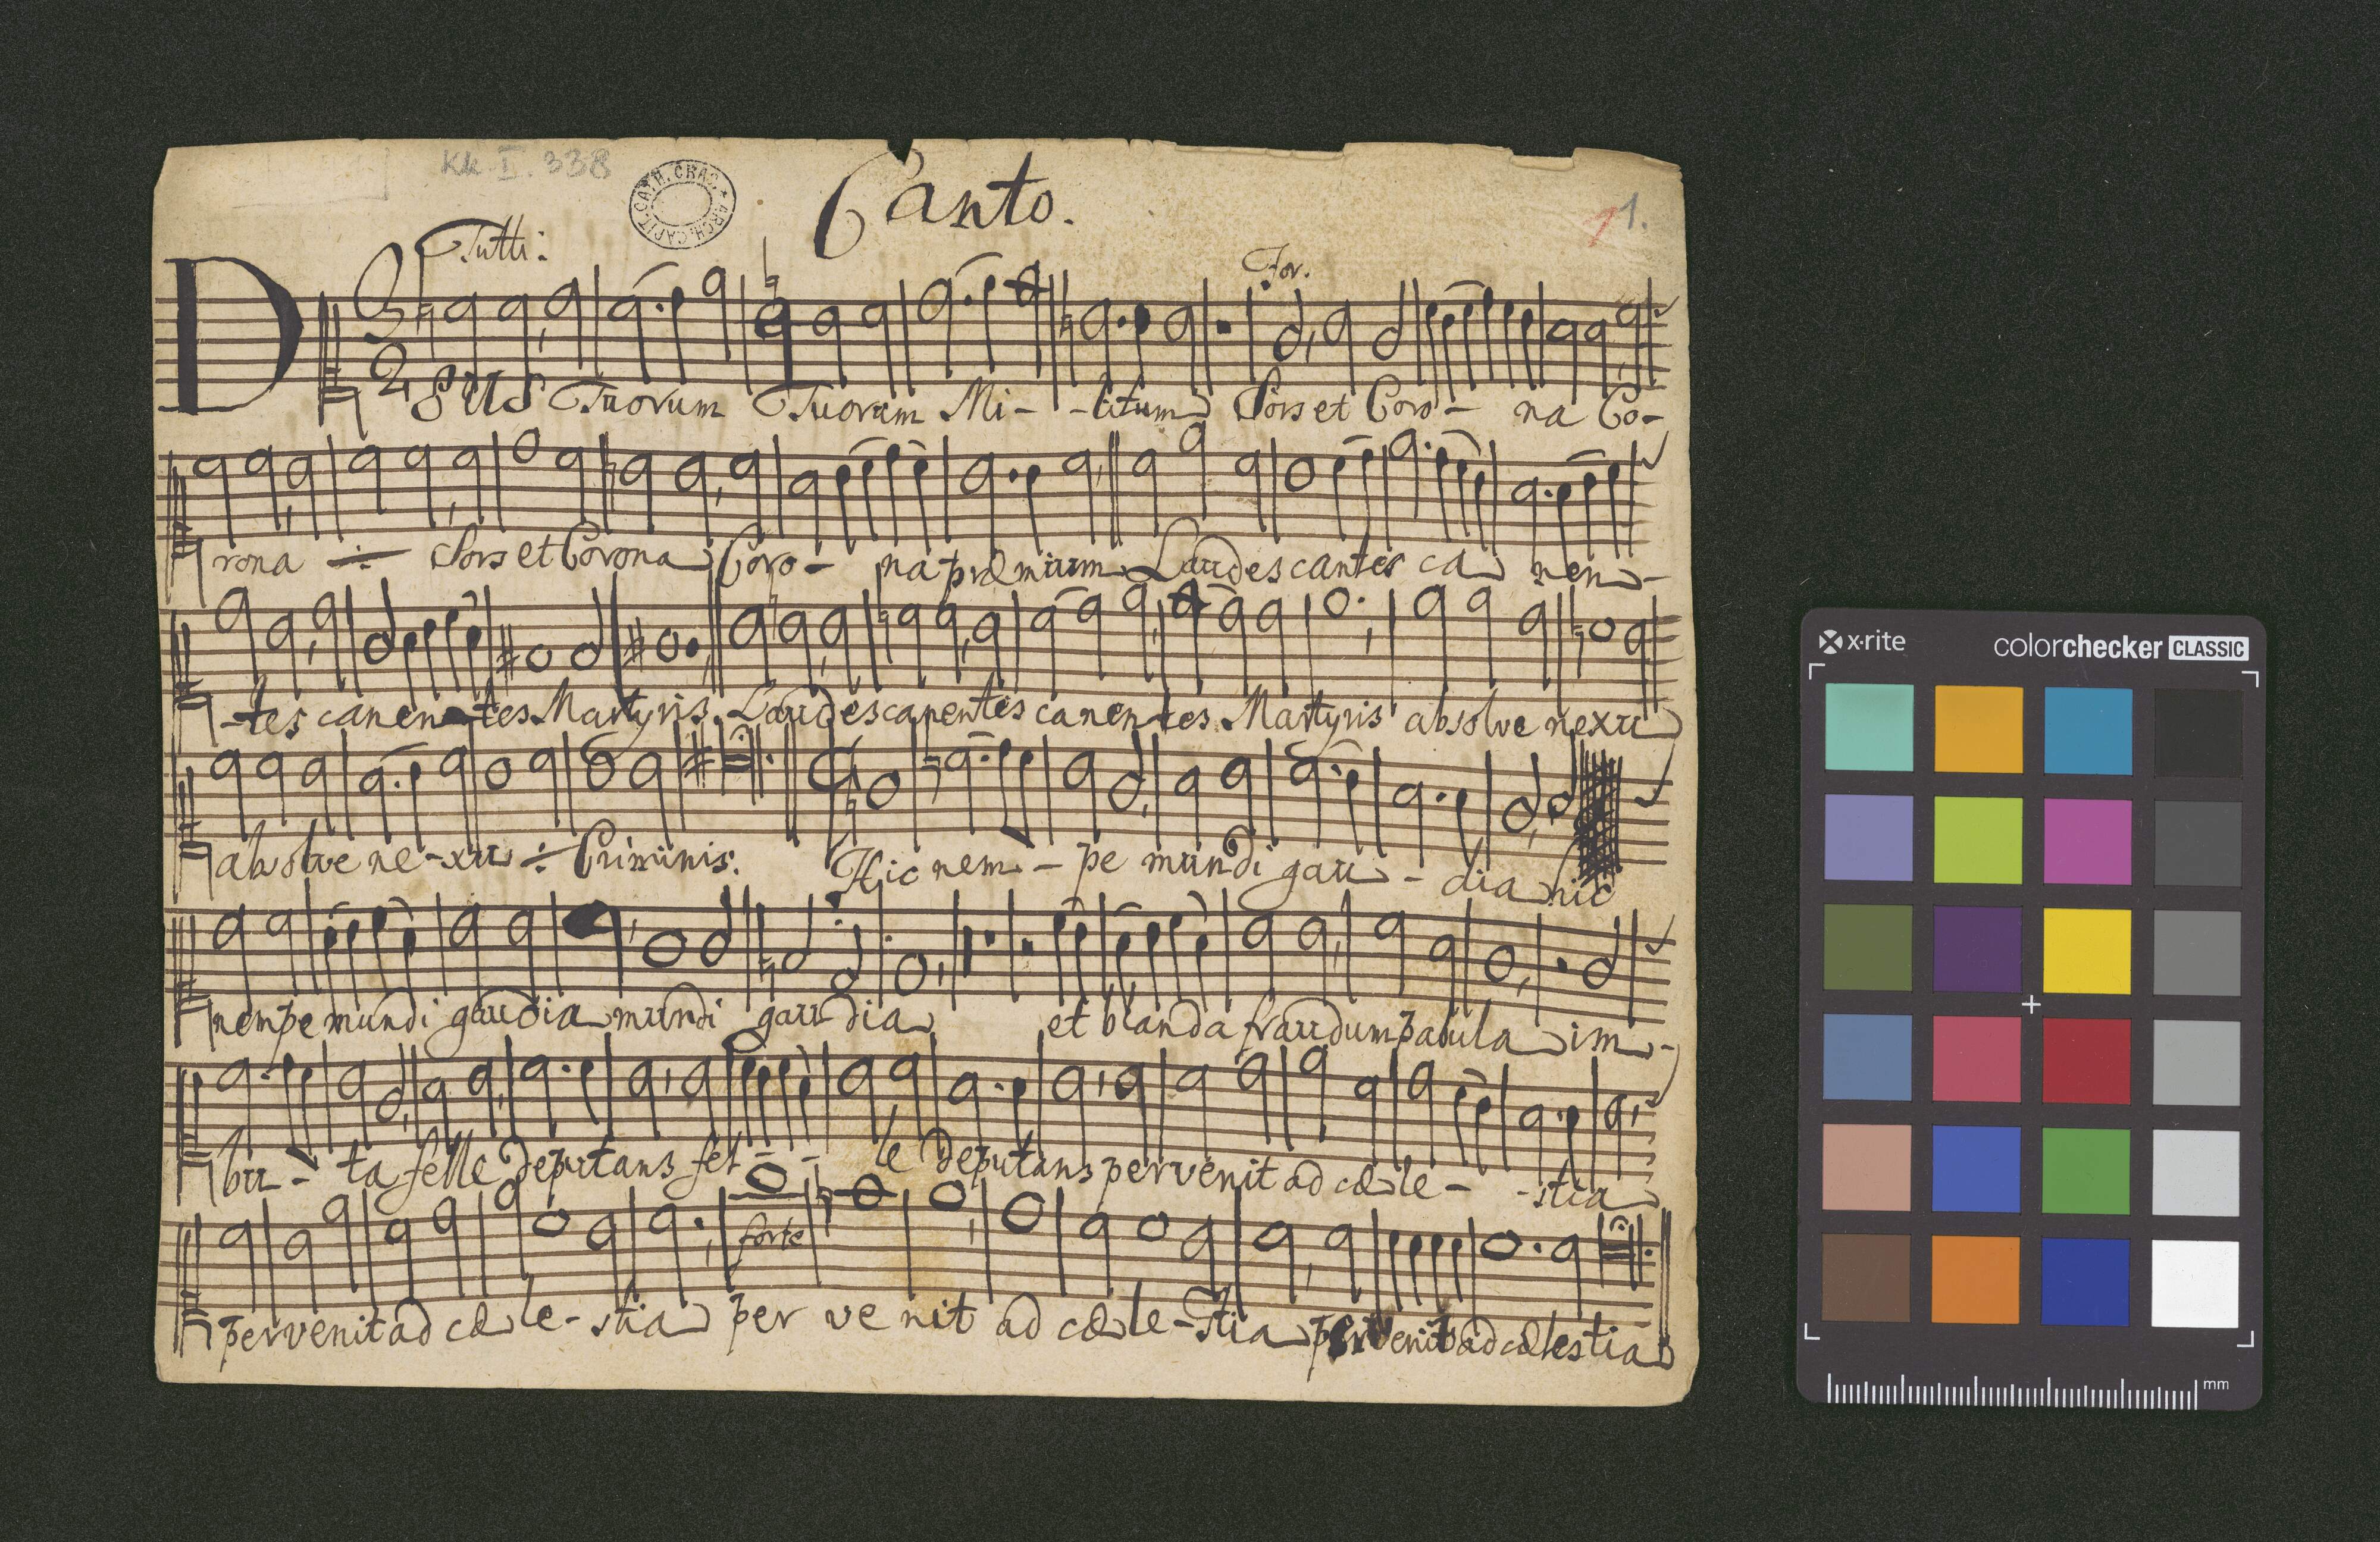 Kk. I. 338
ARCH. CAPIT. CATH. CRAC.
Canto.
11.
Tutti:
For.
DEUS Tuorum Tuorum Mi--litum Sors et Coro- na Co-
rona ÷ Sors et Corona Coro- na præmium Laudes cantes ca nen-
-tes canen-tes Martyris. Laudes canentes canentes Martyris absolve nexu
absolve ne-xu ÷ Criminis. Hic nem-pe mundi gau-dia hic
nempe mundi gaudia mundi gaudia et blanda fraudum pabula im-
bu-ta felle deputans fel--le deputans pervenit ad cæle--stia
forte
pervenit ad cæle-stia per ve nit ad cæle-stia pervenit ad cælestia
x-rite
colorchecker CLASSIC
mm